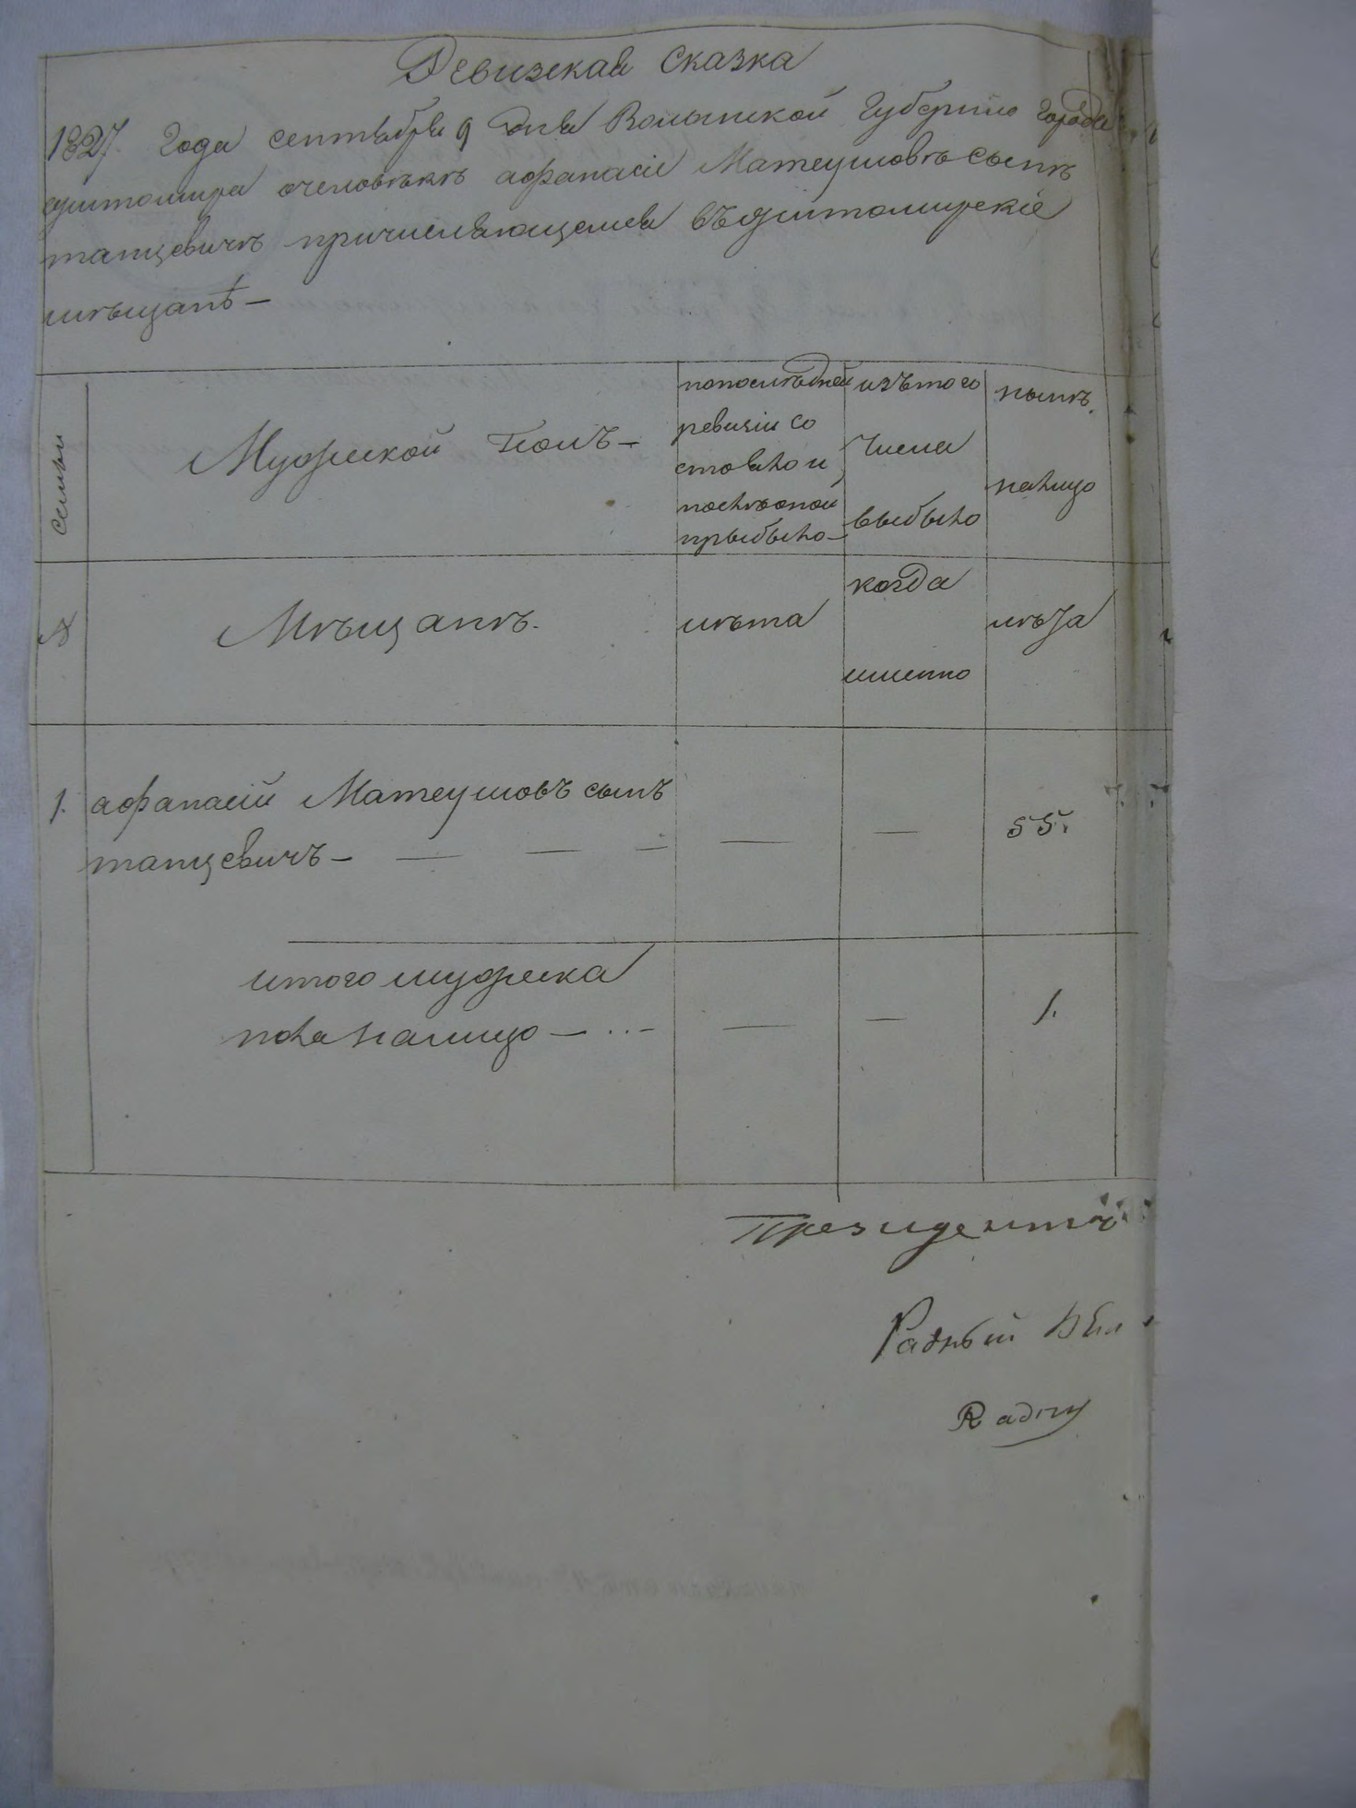 Ревизская Сказка
1827. Года сентября 9 дня Волынской Губернии Города
житомира очеловѣкѣ афанасіе Матеушовѣ сынѣ
танцевичѣ причисляющемся въ житомирскіе
мѣщанѣ —
семьи
Мужеской Полъ —
попослѣдней
ревизіи со
стояло и
послѣоной
прыбыло —
изъ того
числа
выбыло
нынѣ.
налицо
№
Мѣщанѣ.
лѣта
когда
именно
лѣта
1. афанасій Матеушовъ сынъ
танцевичъ — — — — — — 55.
итого мужеска
пола налицо — ... — — — 1.
Президентъ
Радный
Radny